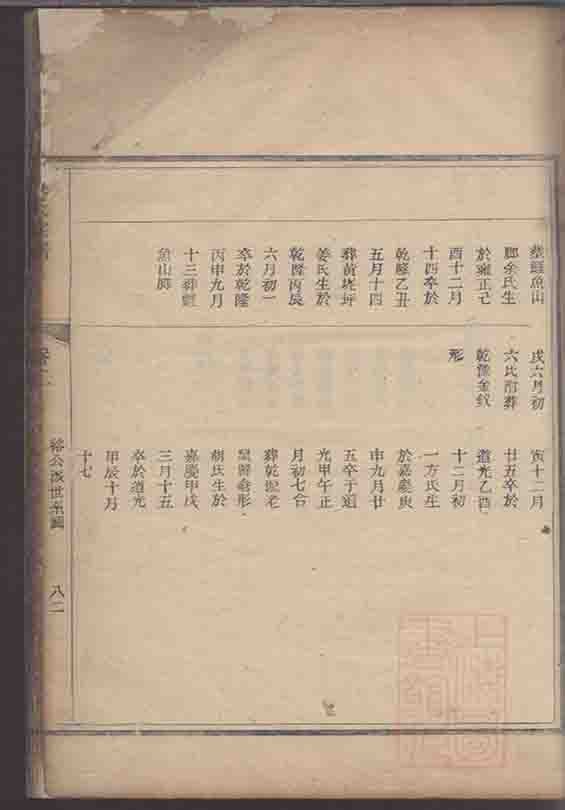 葬鯉魚山
脚余氏生
於雍正己
酉十二月
十四卒於
乾隆乙丑
五月十四
葬黃墩坪
姜氏生於
乾隆丙辰
六月初一
卒於乾隆
丙申九月
十三葬鯉
魚山脚
戌六月初
六氏附葬
乾豫金釵
形
寅十二月
廿五卒於
道光乙酉
十二月初
一方氏生
於嘉慶庚
申九月廿
五卒于道
光甲午正
月初七合
葬乾 老
鼠 倉形
胡氏生於
嘉慶甲戌
三月十五
卒於道光
甲辰十月
十七
裕公派世系圖
八二